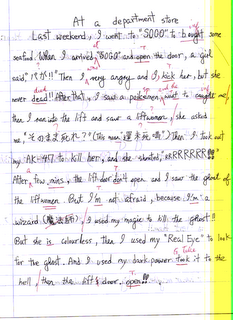 At a department store
Last weekend, I went to "SOGO" to bought some
seafood. When I arrived "SOGO" and open the door, a girl
said "バカ!!" Then I very angry and I kick her, but she
never dead!! After that, I saw a policeman want to caught me,
then I ran into the lift and saw a liftwomen, she asked
me, "そのまま死ね?" (This mean 還来死) Then I took out
my AK-47 to kill her, and she shouted, "RRRRRRR!!"
After few mins, the lift door don't open and I saw the ghost of
the liftwomen. But I'm not afraid, because I'm a
wizard (魔法師), I used my magic to kill the ghost!!
But she is colourless, Then I used my "Real Eye" to look
for the ghost. And I used my dark power took it to the
hell, then the lift's door open!!